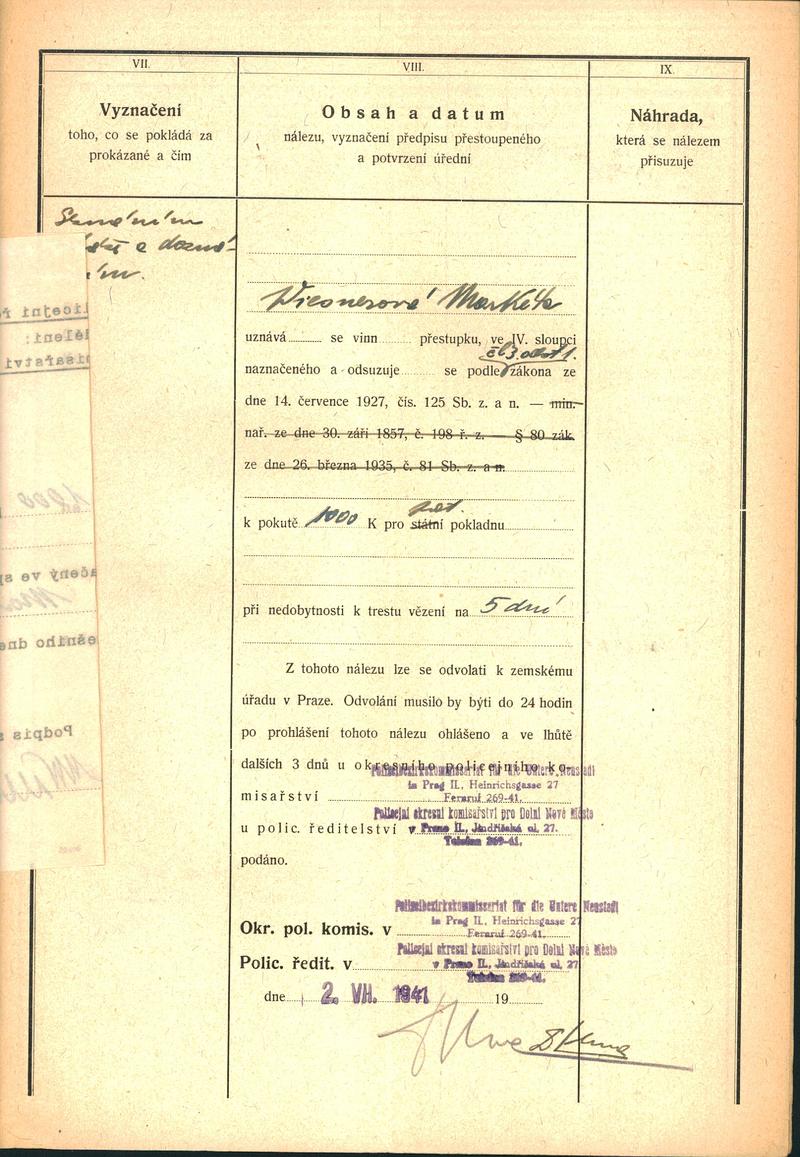 VII.
VIII.
IX.
Vyznačení
toho, co se pokládá za
prokázané a čím
Obsah a datum
nálezu, vyznačení předpisu přestoupeného
a potvrzení úřední
Náhrada,
která se nálezem
přisuzuje
Wiesnerová Markéta
uznává se vinn přestupku, ve IV. sloupci
čl 3 odst 1.
naznačeného a odsuzuje se podle zákona ze
dne 14. července 1927, čís. 125 Sb. z. a n. — min.
nař. ze dne 30. září 1857, č. 198 ř. z. — § 80 zák.
ze dne 26. března 1935, č. 81 Sb. z. a n.
k pokutě 1000 K pro státní pokladnu
při nedobytnosti k trestu vězení na 5 dní
Z tohoto nálezu lze se odvolati k zemskému
úřadu v Praze. Odvolání musilo by býti do 24 hodin
po prohlášení tohoto nálezu ohlášeno a ve lhůtě
dalších 3 dnů u okresního policejního ko-
Polizeibezirkskommissariat für die Untere Neustadt
in Prag II., Heinrichsgasse 27
misařství
Fernruf 269-41.
Policejní okresní komisařství pro Dolní Nové Město
u polic. ředitelství v Praze II., Jindřišská ul. 27.
Telefon 269-41.
podáno.
Polizeibezirkskommissariat für die Untere Neustadt
in Prag II., Heinrichsgasse 27
Okr. pol. komis. v
Fernruf 269-41.
Policejní okresní komisařství pro Dolní Nové Město
Polic. ředit. v
v Praze II., Jindřišská ul. 27
Telefon 269-41.
dne 2. VII. 1941 19